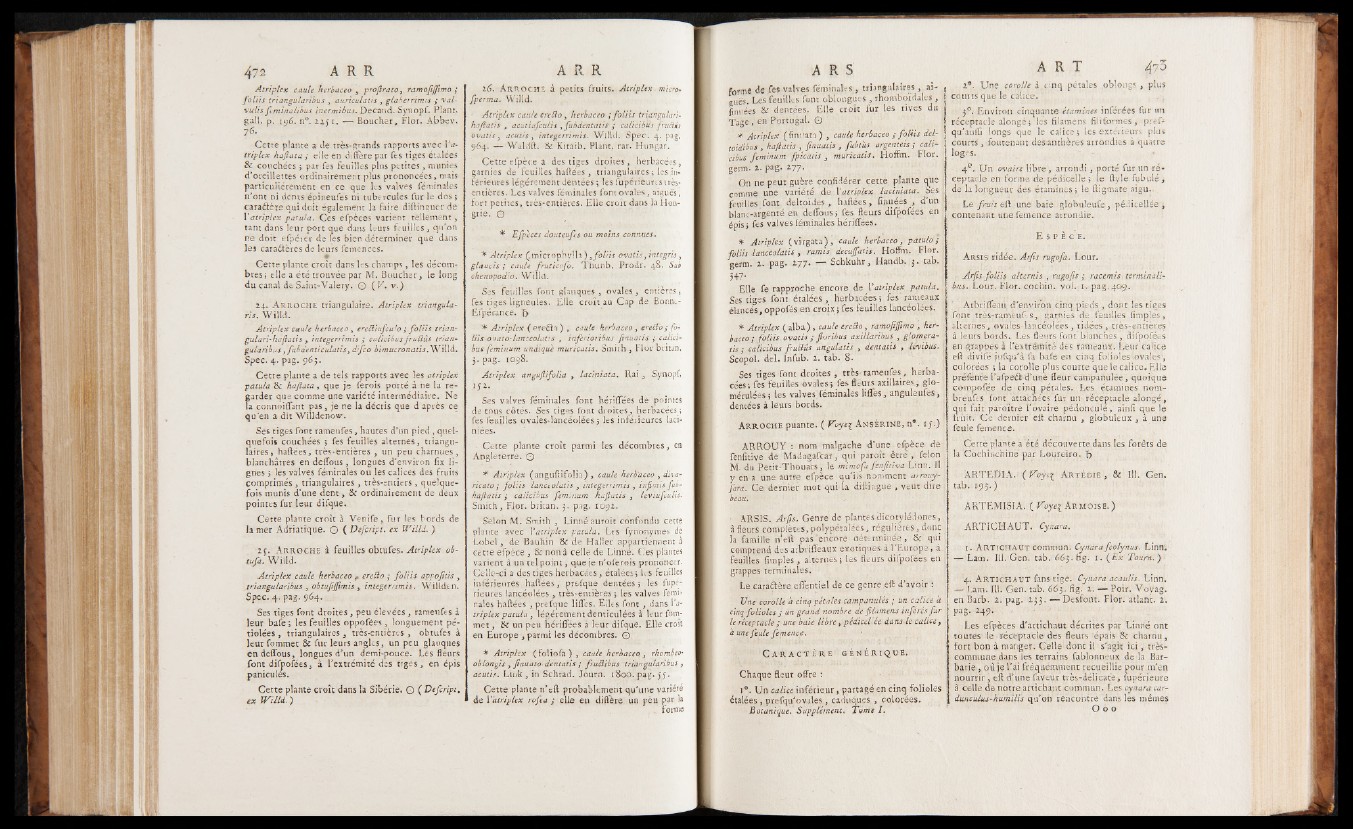 472 A R R
Atriplex caule herbaceo, prostrato, ramosissimo ;
foliis triangularibus, auriculatis, glaberrimis ; val-
vulis feminalibus inermibus. Decand. Synops. Plant.
gall. p. 196. n°. 2251. — Boucher, Flor. Abbev.
76.
Cette plante a de très-grands rapports avec l'a-
triplex hastata ; elle en diffère par ses tiges étalées
& couchées ; par ses feuilles plus petites, munies
d'oreillettes ordinairement plus prononcées, mais
particuliérement en ce que les valves féminales
n'ont ni dents épineuses ni tubercules sur le dos ;
caractère qui doit également la faire distinguer de
l'atriplex patula. Ces espèces varient tellement,
tant dans leur port que dans leurs feuilles, qu'on
ne doit espérer de les bien déterminer que dans
les caractères de leurs semences.
Cette plante croît dans les champs, les décom-
bres ; elle a été trouvée par M. Boucher, le long
du canal de Saint-Valery. ☉ (V. v.)
24. ARROCHE triangulaire. Atriplex triangula-
ris. Willd.
Atriplex caule herbaceo, erectiusculo ; foliis trian-
gulari-hastatis, integerrimis ; calicibus fructûs trian-
gularibus, subdenticulatis, disco bimucronatis. Willd.
Spec. 4. pag. 963.
Cette plante a de tels rapports avec les atriplex
patula & hastata, que je serois porté à ne la re-
garder que comme une variété intermédiaire. Ne
la connoissant pas, je ne la décris que d'après ce
qu'en a dit Willdenow.
Ses tiges sont rameuses, hautes d'un pied, quel-
quefois couchées ; ses feuilles alternes, triangu-
laires, hastées, très-entières, un peu charnues,
blanchâtres en dessous, longues d'environ six li-
gnes ; les valves féminales ou les calices des fruits
comprimés, triangulaires, très-entiers, quelque-
fois munis d'une dent, & ordinairement de deux
pointes sur leur disque.
Cette plante croît à Venise, sur les bords de
la mer Adriatique. ☉ (Descript. ex Willd.)
25. ARROCHE à feuilles obtuses. Atriplex ob-
tusa. Willd.
Atriplex caule herbaceo, erecto ; foliis oppositis,
triangularibus, obtusissimis, integerrimis. Willden.
Spec. 4. pag. 964.
Ses tiges sont droites, peu élevées, rameuses à
leur base ; les feuilles opposées, longuement pé-
tiolées, triangulaires, très-entières, obtuses à
leur sommet & sur leurs angles, un peu glauques
en dessous, longues d'un demi-pouce. Les fleurs
sont disposées, à l'extrémité des tiges, en épis
paniculés.
Cette plante croît dans la Sibérie. ☉ (Descript.
ex Willd.)
A R R
26. ARROCHE à petits fruits. Atriplex micro-
sperma. Willd.
Atriplex caule erecto, herbaceo ; foliis triangulari-
hastatis, acutiusculis, subdentatis ; calicibus fructûs
ovatis, acutis, integerrimis. Willd. Spec. 4. pag.
964. — Waldst. & Kitaib. Plant. rar. Hungar.
Cette espèce a des tiges droites, herbacées,
garnies de feuilles hastées, triangulaires ; les in-
férieures légérement dentées ; les supérieures très-
entières. Les valves féminales sont ovales, aiguës,
fort petites, très-entières. Elle croît dans la Hon-
grie. ☉
* Espèces douteuses ou moins connues.
* Atriplex (microphylla), foliis ovatis, integris,
glaucis ; caule fruticoso. Thunb. Prodr. 48. Sub
chenopodio. Willd.
Ses feuilles sont glauques, ovales, entières,
ses tiges ligneules. Elle croît au Cap de Bonne-
Espérance. ♄
* Atriplex (erecta), caule herbaceo, erecto ; fo-
liis ovato-lanceolatis, inferioribus sinuatis ; calici-
bus feminum undiquè muricatis. Smith, Flor. britan.
3. pag. 1098.
Atriplex angustifolia, laciniata. Rai, Synops.
152.
Ses valves féminales sont hérissées de pointes
de tous côtés. Ses tiges sont droites, herbacées ;
ses feuilles ovales-lancéolées ; les inférieures laci-
niées.
Cette plante croît parmi les décombres, en
Angleterre. ☉
* Atriplex (angustifolia), caule herbaceo, diva-
ricato ; foliis lanceolatis, integerrimis, infimis sub-
hastatis ; calicibus feminum hastatis, leviusculis.
Smith, Flor. britan. 3. pag. 1092.
Selon M. Smith, Linné auroit confondu cette
plante avec l'atriplex patula. Les synonymes de
Lobel, de Bauhin & de Haller appartiennent à
cette espèce, & non à celle de Linné. Ces plantes
varient à un tel point, que je n'oserois prononcer.
Celle-ci a des tiges herbacées, étalées ; les feuilles
inférieures hastées, presque dentées ; les supé-
rieures lancéolées, très-entières ; les valves femi-
nales hastées, presque lisses. Elles sont, dans l'a-
triplex patula, légérement denticulées à leur som-
met, & un peu hérissées à leur disque. Elle croît
en Europe, parmi les décombres. ☉
* Atriplex (foliosa), caule herbaceo, rhombeo-
oblongis, sinuato-dentatis ; fructibus triangularibus,
acutis. Link, in Schrad. Journ. 1800. pag. 55.
Cette plante n'est probablement qu'une variété
de l'atriplex rosea ; elle en diffère un peu par la
forme
A R S
forme de ses valves féminales, triangulaires, ai-
gues. Les feuilles sont oblongues, rhomboïdales,
sinuées & dentées. Elle croît sur les rives du
Tage, en Portugal. ☉
* Atriplex (sinuata), caule herbaceo ; foliis del-
toidibus, hastatis, sinuatis, subtùs argenteis ; cali-
cibus feminum spicatis, muricatis. Hoffm. Flor.
germ. 2. pag. 277.
On ne peut guère considérer cette plante que
comme une variété de l'atriplex laciniata. Ses
feuilles sont deltoïdes, hastées, sinuées, d'un
blanc-argenté en dessous ; ses fleurs disposées en
épis ; ses valves féminales hérissées.
* Atriplex (virgata), caule herbaceo, patulo ;
foliis lanceolatis, ramis decussatis. Hoffm. Flor.
germ. 2. pag. 277. — Schkuhr, Handb. 3. tab.
347.
Elle se rapproche encore de l'atriplex patula.
Ses tiges sont étalées, herbacées ; ses rameaux
élancés, opposés en croix ; ses feuilles lancéolées.
* Atriplex (alba), caule erecto, ramosissimo, her-
baceo ; foliis ovatis ; floribus axillaribus, glomera-
tis ; calicibus fructûs angulatis, dentatis, levibus.
Scopol. del. Insub. 2. tab. 8.
Ses tiges sont droites, très-rameuses, herba-
cées ; ses feuilles ovales ; ses fleurs axillaires, glo-
mérulées ; les valves féminales lisses, anguleuses,
dentées à leurs bords.
ARROCHE puante. (Voyez ANSÉRINE, n°. 15.)
ARROUY : nom malgache d'une espèce de
sensitive de Madagascar, qui paroît être, selon
M. du Petit-Thouars, le mimosa sensitiva Linn. Il
y en a une autre espèce qu'ils nomment arrouy-
zare. Ce dernier mot qui la distingue, veut dire
beau.
ARSIS. Arsis. Genre de plantes dicotylédones,
à fleurs complètes, polypétalées, régulières, dont
la famille n'est pas encore déterminée, & qui
comprend des arbrisseaux exotiques à l'Europe, à
feuilles simples, alternes ; les fleurs disposées en
grappes terminales.
Le caractère essentiel de ce genre est d'avoir :
Une corolle à cinq pétales campanulés ; un calice à
cinq folioles ; un grand nombre de filamens insérés sur
le réceptacle ; une baie libre, pédicellée dans le calice,
à une seule semence.
CARACTÈRE GÉNÉRIQUE.
Chaque fleur offre :
1°. Un calice inférieur, partagé en cinq folioles
étalées, presqu'ovales, caduques, colorées.
Botanique. Supplément. Tome I.
A R T 473
2°. Une corolle à cinq pétales oblongs, plus
courts que le calice.
3°. Environ cinquante étamines insérées sur un
réceptacle alongé ; les filamens filiformes, pres-
qu'aussi longs que le calice ; les extérieurs plus
courts, soutenant des anthères arrondies à quatre
loges.
4°. Un ovaire libre, arrondi, porté sur un ré-
ceptacle en forme de pédicelle ; le style subulé,
de la longueur des étamines ; le stigmate aigu.
Le fruit est une baie globuleuse, pédicellée,
contenant une semence arrondie.
ESPÈCE.
ARSIS ridée. Arsis rugosa. Lour.
Arsis foliis alternis, rugosis ; racemis terminali-
bus. Lour. Flor. cochin. vol. 1. pag. 409.
Arbrisseau d'environ cinq pieds, dont les tiges
sont très-rameuses, garnies de feuilles simples,
alternes, ovales lancéolées, ridées, très-entières
à leurs bords. Les fleurs sont blanches, disposées
en grappes à l'extrémité des rameaux. Leur calice
est divisé jusqu'à sa base en cinq folioles ovales,
colorées ; la corolle plus courte que le calice. Elle
présente l'aspect d'une fleur campanulée, quoique
composée de cinq pétales. Les étamines nom-
breuses sont attachées sur un réceptacle alongé,
qui fait paroître l'ovaire pédonculé, ainsi que le
fruit. Ce dernier est charnu, globuleux, à une
seule semence.
Cette plante a été découverte dans les forêts de
la Cochinchine par Loureiro. ♄
ARTEDIA. (Voyez ARTÉDIE, & Ill. Gen.
tab. 193.)
ARTEMISIA. (Voyez ARMOISE.)
ARTICHAUT. Cynara.
1. ARTICHAUT commun. Cynara scolymus. Linn.
— Lam. Ill. Gen. tab. 663. fig. 1. (Ex Tourn.)
4. ARTICHAUT sans tige. Cynara acaulis. Linn.
— Lam. Ill. Gen. tab. 663. fig. 2. — Poir. Voyag.
en Barb. 2. pag. 235. — Desfont. Flor. atlant. 2.
pag. 249.
Les espèces d'artichaut décrites par Linné ont
toutes le réceptacle des fleurs épais & charnu,
fort bon à manger. Celle dont il s'agit ici, très-
commune dans les terrains sablonneux de la Bar-
barie, où je l'ai fréquemment recueillie pour m'en
nourrir, est d'une saveur très-délicate, supérieure
à celle de notre artichaut commun. Les cynara car-
dunculus-humilis qu'on rencontre dans les mêmes
O o o